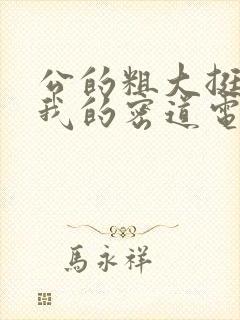 公的粗大挺
我的密道電
馬永祥